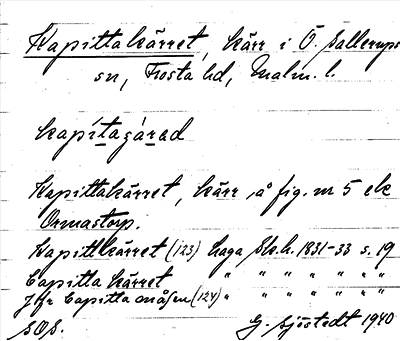 Kapittakärret, kärr i Ö. Sallerups
sn, Frosta hd, Malm. l.
kapítagárad
Kapittakärret, kärr å fig. nr 5 ek
Ormastorp.
Kapittkärret (123) haga Sk.h. 1831-33 s. 19
Capitta kärret " " " " " "
Jfr Capitta måsen (124) " " " " " "
G. Sjöstedt 1940